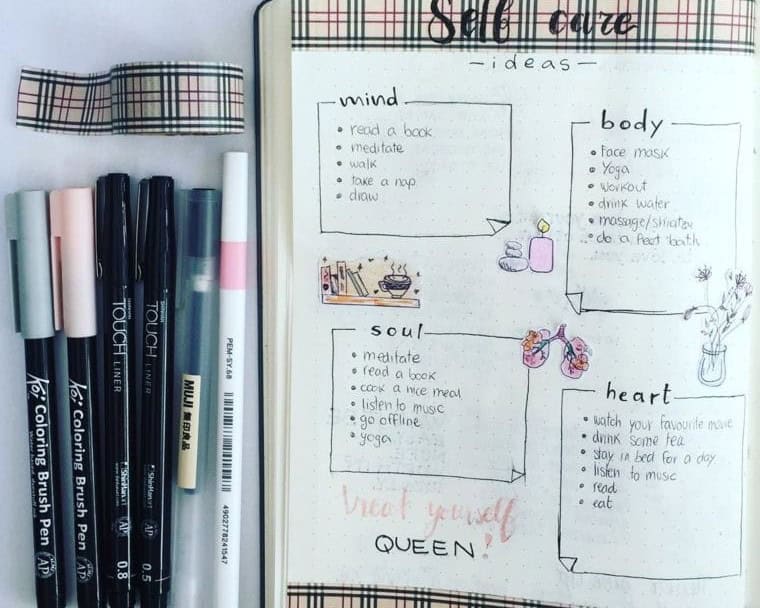 Self care
- ideas -
mind
read a book
meditate
walk
take a nap
draw
body
Face mask
Yoga
Workout
drink water
massage/shiatsu
do a feet bath
soul
meditate
read a book
cook a nice meal
listen to music
go offline
yoga
heart
watch your favourite movie
drink some tea
stay in bed for a day
listen to music
read
eat
Treat yourself
QUEEN!
Coloring Brush Pen
AP
Coloring Brush Pen
AP
TOUCH LINER
ShinHan art
AP
0.8
TOUCH LINER
ShinHan art
AP
0.5
MUJI 無印良品
PEM-SY.68
4902778241547